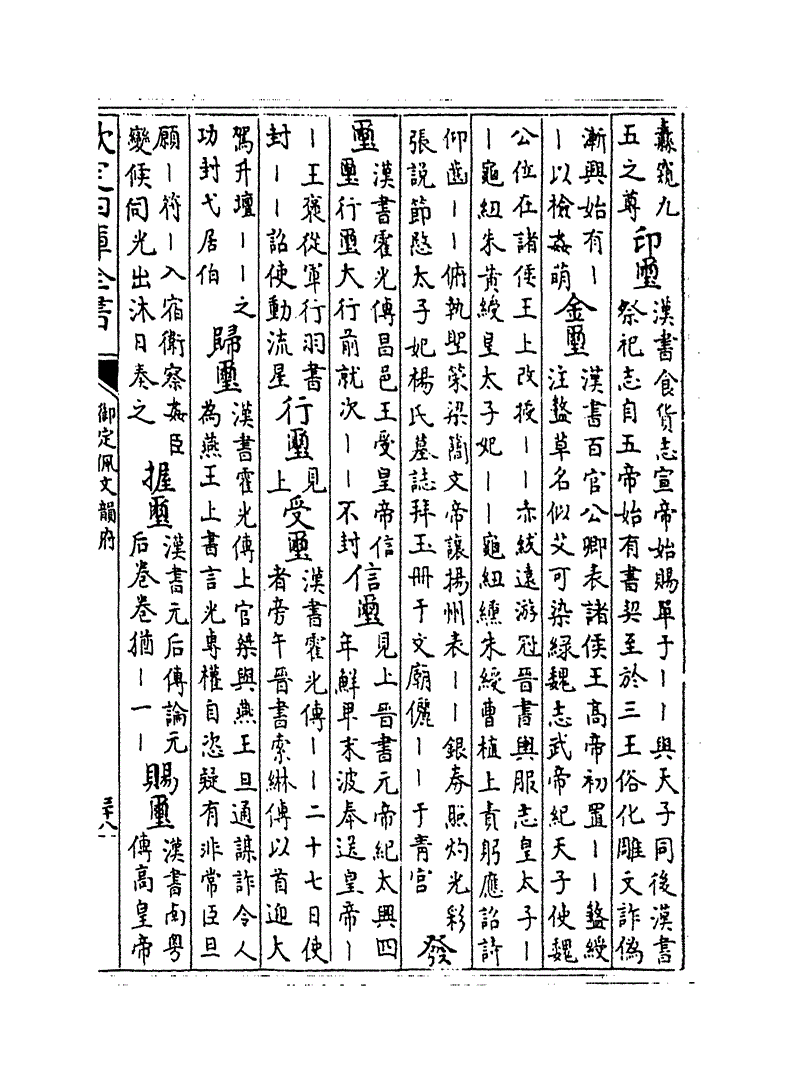 纛窺九五之尊 印璽 漢書食貨志宣帝始賜單于｜｜與天子同後漢書祭祀志自五帝始有書契至於三王俗化雕文詐偽
漸興始有｜｜以檢姦萌 金璽 漢書百官公卿表諸侯王高帝初置｜｜盭綬注盭草名似艾可染緑魏志武帝紀天子使魏
公位在諸侯王上改授｜｜赤紱遠游冠晉書輿服志皇太子｜｜龜紐朱黄綬皇太子妃｜｜龜紐纁朱綬曹植上責躬應詔詩
仰齒｜｜俯執聖策梁簡文帝讓揚州表｜｜銀券照灼光彩張説節愍太子妃楊氏墓誌拜玉册于文廟儷｜｜于青宫 發
璽 漢書霍光傳昌邑王受皇帝信璽行璽大行前就次｜｜不封 信璽 見上晉書元帝紀太興四年鮮卑末波奉送皇帝｜
｜王褒從軍行羽書封｜｜詔使動流星 行璽 見上 受璽 漢書霍光傳｜｜二十七日使者旁午晉書索綝傳以首迎大
駕升壇｜｜之功封弋居伯 歸璽 漢書霍光傳上官桀與燕王旦通謀詐令人為燕王上書言光專權自恣疑有非常臣旦
願｜符｜入宿衛察姦臣變候伺光出沐日奏之 握璽 漢書元后傳論元后卷卷猶｜一｜ 賜璽 漢書南粤傳高皇帝
欽定四庫全書 御定佩文韻府 三十八